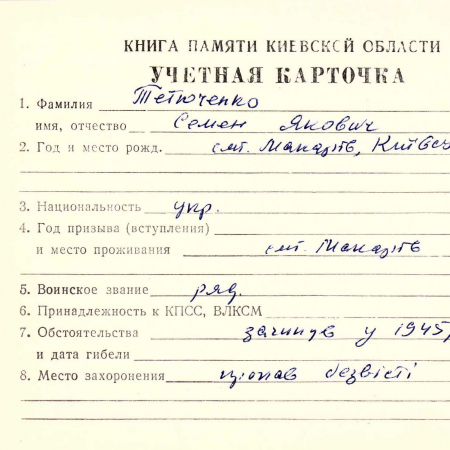 КНИГА ПАМЯТИ КИЕВСКОЙ ОБЛАСТИ
УЧЕТНАЯ КАРТОЧКА
1. Фамилия Тетюченко
имя, отчество Семен Якович
2. Год и место рожд. смт. Макарів,
3. Национальность укр.
4. Год призыва (вступления)
и место проживания смт. Макарів
5. Воинское звание ряд.
6. Принадлежность к КПСС, ВЛКСМ
7. Обстоятельства загинув у 1945,
и дата гибели
8. Место захоронения пропав безвісті